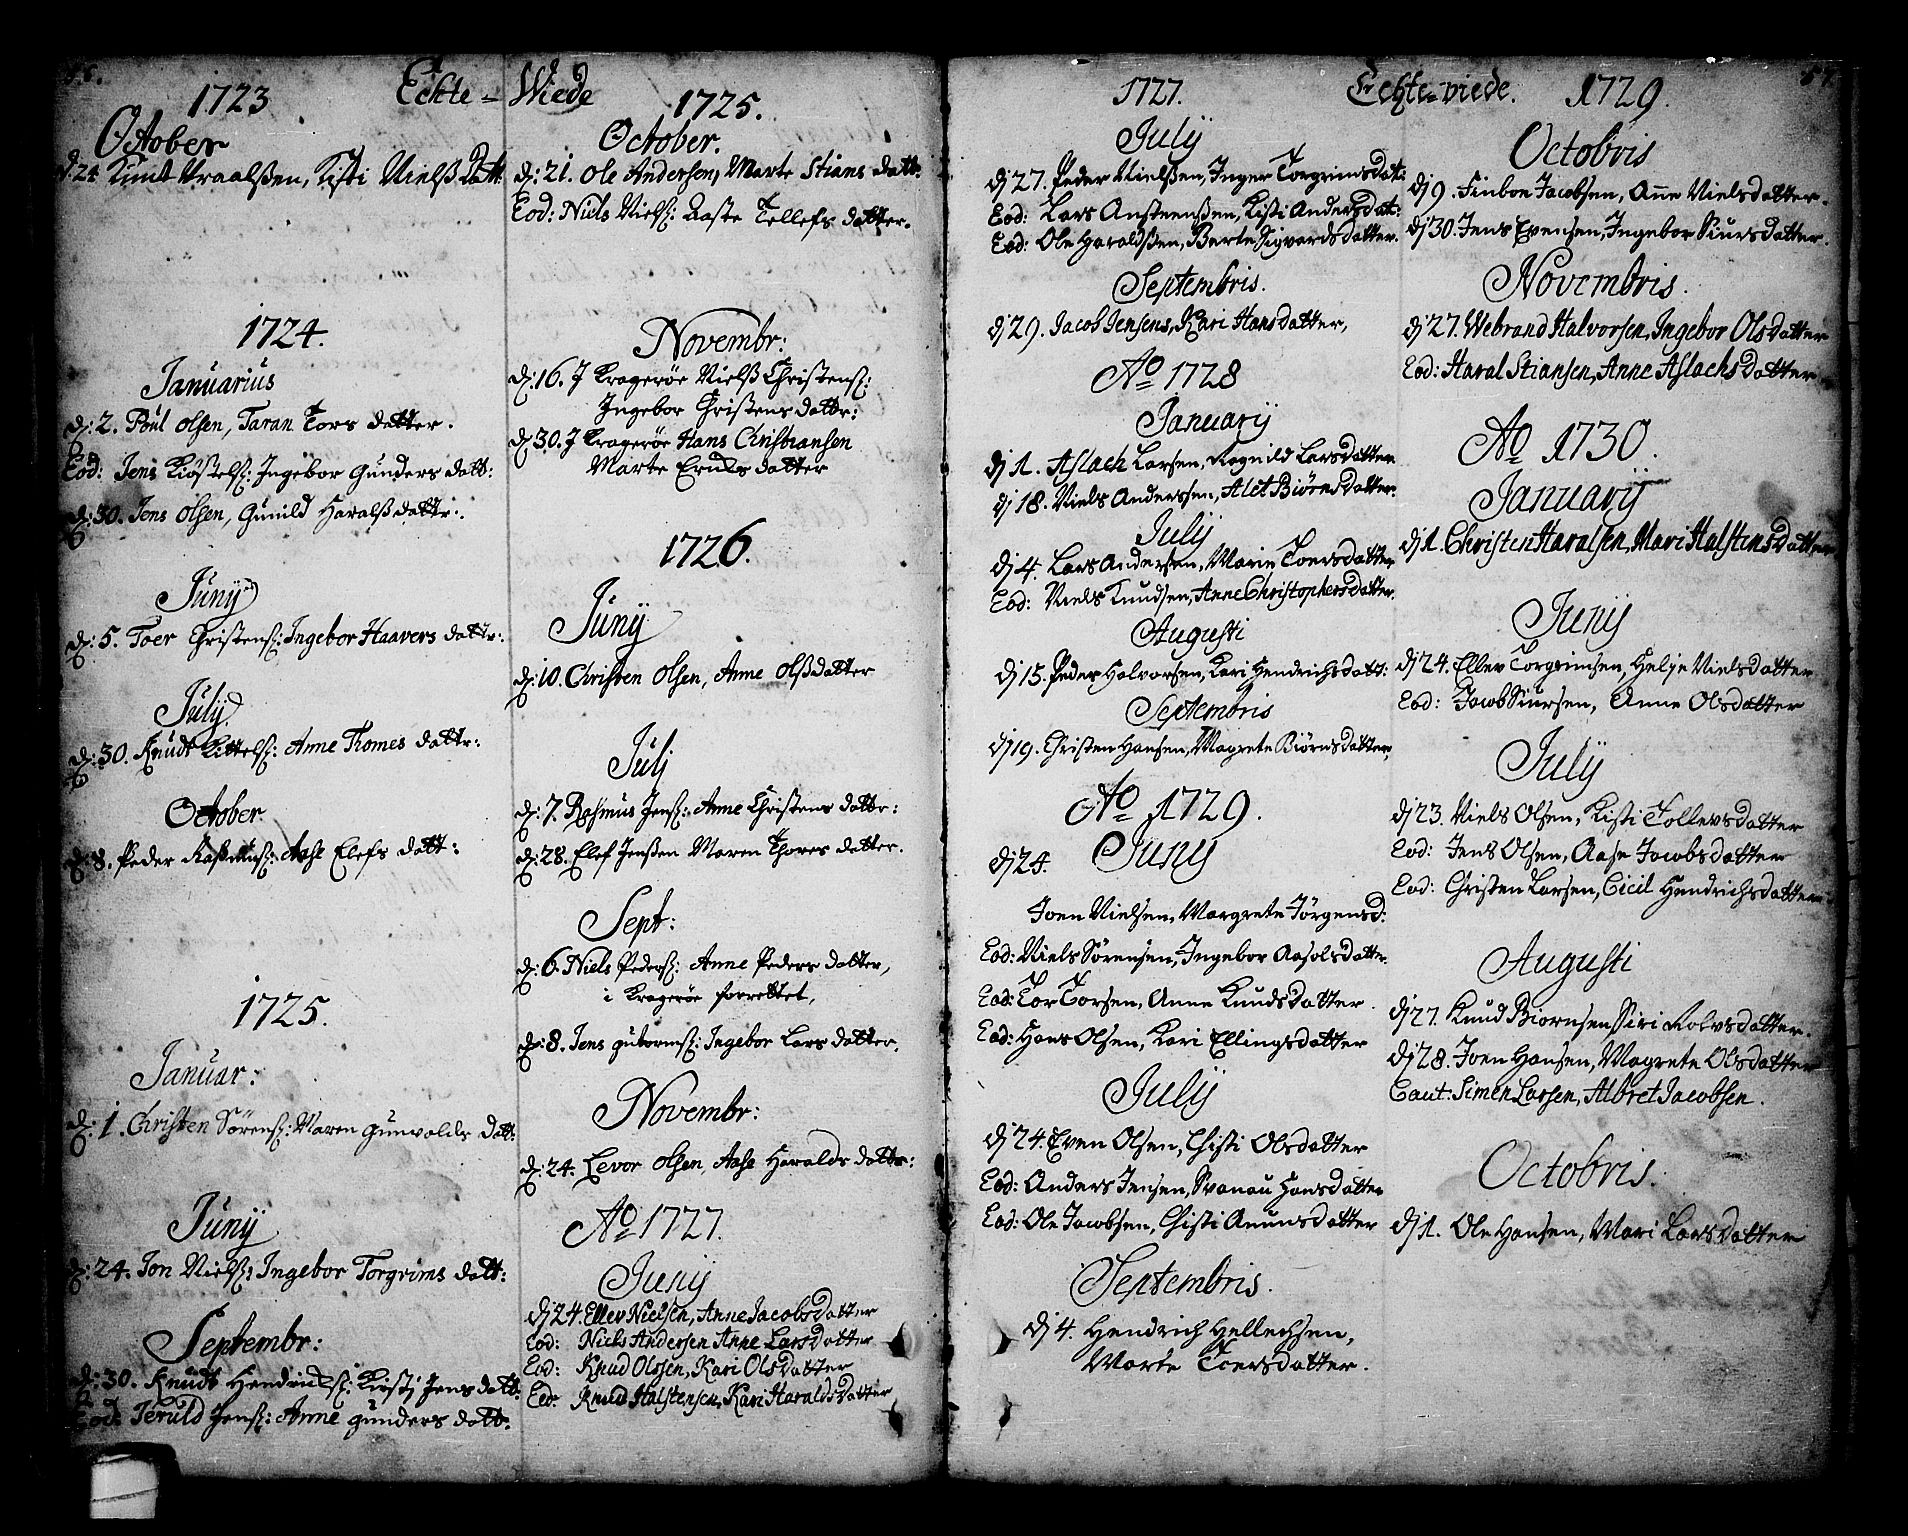 Echte - Wiede
1723
October
d: 24 Knut Wraalßen, Kisti Nielß Datt:
1724.
Januarius
d: 2. Poul Olsen, Taran Tors datter.
Eod: Jens Kiöstels: Ingebor Gunders datt:
d: 30. Jens Olsen, Gunild Haralß dattr:
Junÿ
d: 5. Toer Christens: Ingebor Haavers dattr:
Julÿ
d: 30. Knudt Kittels: Anne Thomes dattr:
October
d: 8. Peder Raßmus: Aase Elefs datt:
1725.
Januar:
d: 1. Christen Sörens: Maren Gunvolds datt:
Junÿ
d: 24. Jon Niels: Ingebor Torgrims datt:
Septembr:
d: 30. Knudt Hendricks: Kirstj Jens datt:
Eod: Jeruld Jens: Anne gunders datt.
1725.
October.
d: 21. Ole Andersen, Marte Stians datt:
Eod: Niels Niels: Aaste Tellefs datter.
Novembr:
d: 16. J Kragerøe Nielß Christens:
Ingebor Christens dattr:
d: 30. J Kragerøe Hans Christiansen
Marte Ericks datter
1726.
Junÿ
d: 10. Christen Olsen, Anne Olßdatter
Julj
d: 7. Rasmus Jens: Anne Christens dattr:
d: 28. Elef Jenßen Maren Thores datter.
Sept:
d: 6. Niels Peders: Anne Peders datter,
i Kragerøe forrettet,
d: 8. Jens guttorms: Ingebor Lars datter,
Novembr:
d: 24. Levor Olsen, Aase Haralds dattr:
Ao 1727.
Junÿ
dj 24. Ellev Nielsen, Anne Jacobsdatter
Eod: Niels Andersen Anne Larsdatter
Eod: Knud Olssen, Kari Olsdatter
Eod: Knud Halstensen, Kari Haraldsdatter
Echte-viede.
1727.
Julÿ
dj 27. Peder Nielßen, Inger Torgrimsdat:
Eod: Lars Ansteenßen, Kisti Andersdat:
Eod: Ole Haraldßen, Berte Sigvardsdatter.
Septembris.
dj 29. Jacob Jensens, Kari Hansdatter,
Ao 1728
Januarÿ
dj 1. Aslach Larsen, Ragnild Larsdatter
dj 18. Niels Anderssen, Alet Biörnsdatter.
Julÿ
dj 4. Lars Andersen, Marie Toersdatter
Eod: Niels Knudsen, Anne Christophersdatter.
Augusti
dj 15. Peder Halvorsen, Kari Hendrichsdatt:
Septembris
dj 19. Christen Hansen, Magrete Biörnsdatter,
Ao 1729.
dj 24. Junÿ
Joen Nielsen, Margrete Jörgensd:
Eod: Niels Sörensen, Ingebor Aasolsdatter.
Eod: Tor Torsen, Anne Knudsdatter.
Eod: Hans Olsen, Kari Ellingsdatter
Julÿ
dj 24. Even Olsen, Chisti Olsdatter
Eod: Anders Jensen, Svanau Hansdatter
Eod: Ole Jacobsen, Chisti Anunsdatter
Septembris.
dj 4. Hendrich Hellechsen,
Marte Toersdatter.
1729.
57.
Octobris
dj 9. Finbon Jacobsen, Añe Nielsdatter.
dj 30. Jens Evensen, Ingebor Siursdatter.
Novembris.
dj 27. Webrand Halvorsen, Ingebor Olsdatter
Eod: Haral Stiansen, Anne Aslachsdatter
Ao 1730.
Januarÿ
dj 1. Christen Haralsen, Mari Halstensdatter
Junÿ
dj 24. Ellev Torgrimsen, Helje Nielsdatter
Eod: Jacob Siursen, Anne Olsdatter
Julÿ
dj 23. Niels Olsen, Kisti Tollevsdatter
Eod: Jens Olsen, Aase Jacobsdatter
Eod: Christen Larsen, Cicil Hendrichsdatter
Augusti
dj 27. Knud Biornsen Siri Rolvsdatter.
dj 28. Joen Hansen, Magrete Olsdatter
Eaut. Simen Larsen, Albret Jacobsen.
Octobris.
dj 1. Ole Hansen, Mari Larsdatter